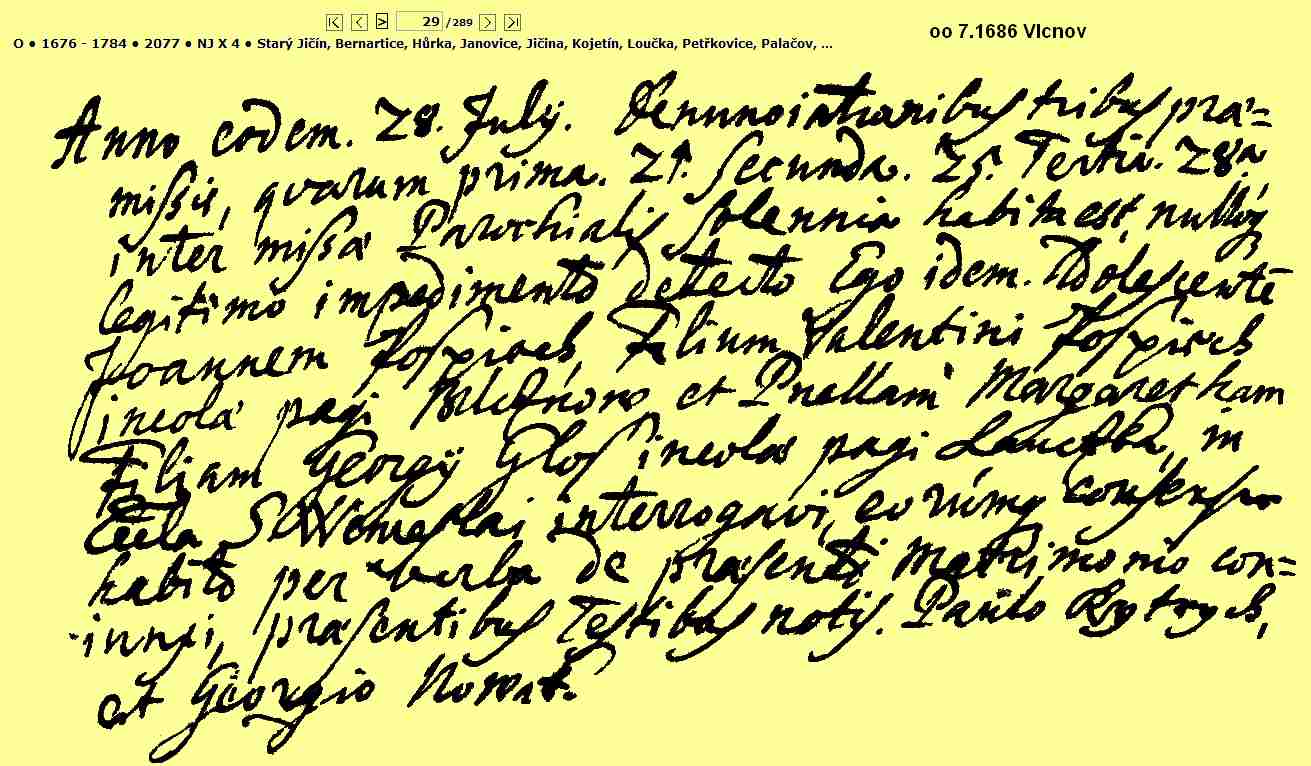 29 /289
O ● 1676 - 1784 ● 2077 ● NJ X 4 ● Starý Jičín, Bernartice, Hůrka, Janovice, Jičina, Kojetín, Loučka, Petřkovice, Palačov, ...
oo 7.1686 Vlcnov
Anno eodem. 28. Julÿ. Denunciationibus tribus præ=
missis, qvarum prima. 21. Secunda. 25. Tertia. 28a
inter missæ Parochialis solennia habita est, nulloq
legitimo impedimento detecto Ego idem. Adolescentē
Joannem Hospires, Filium Valentini Hospires
incolæ pagi et Puellam Margaretham
Filiam Georgÿ Glos incolæ pagi Lauczka, in
Eccla S. Wenceslai interrogavi, eorūmq consensu
habito per verba de præsenti Matrimonio con=
iunxi, præsentibus Testibus notis. Paulo Rytrych,
et Georgio Nowak.